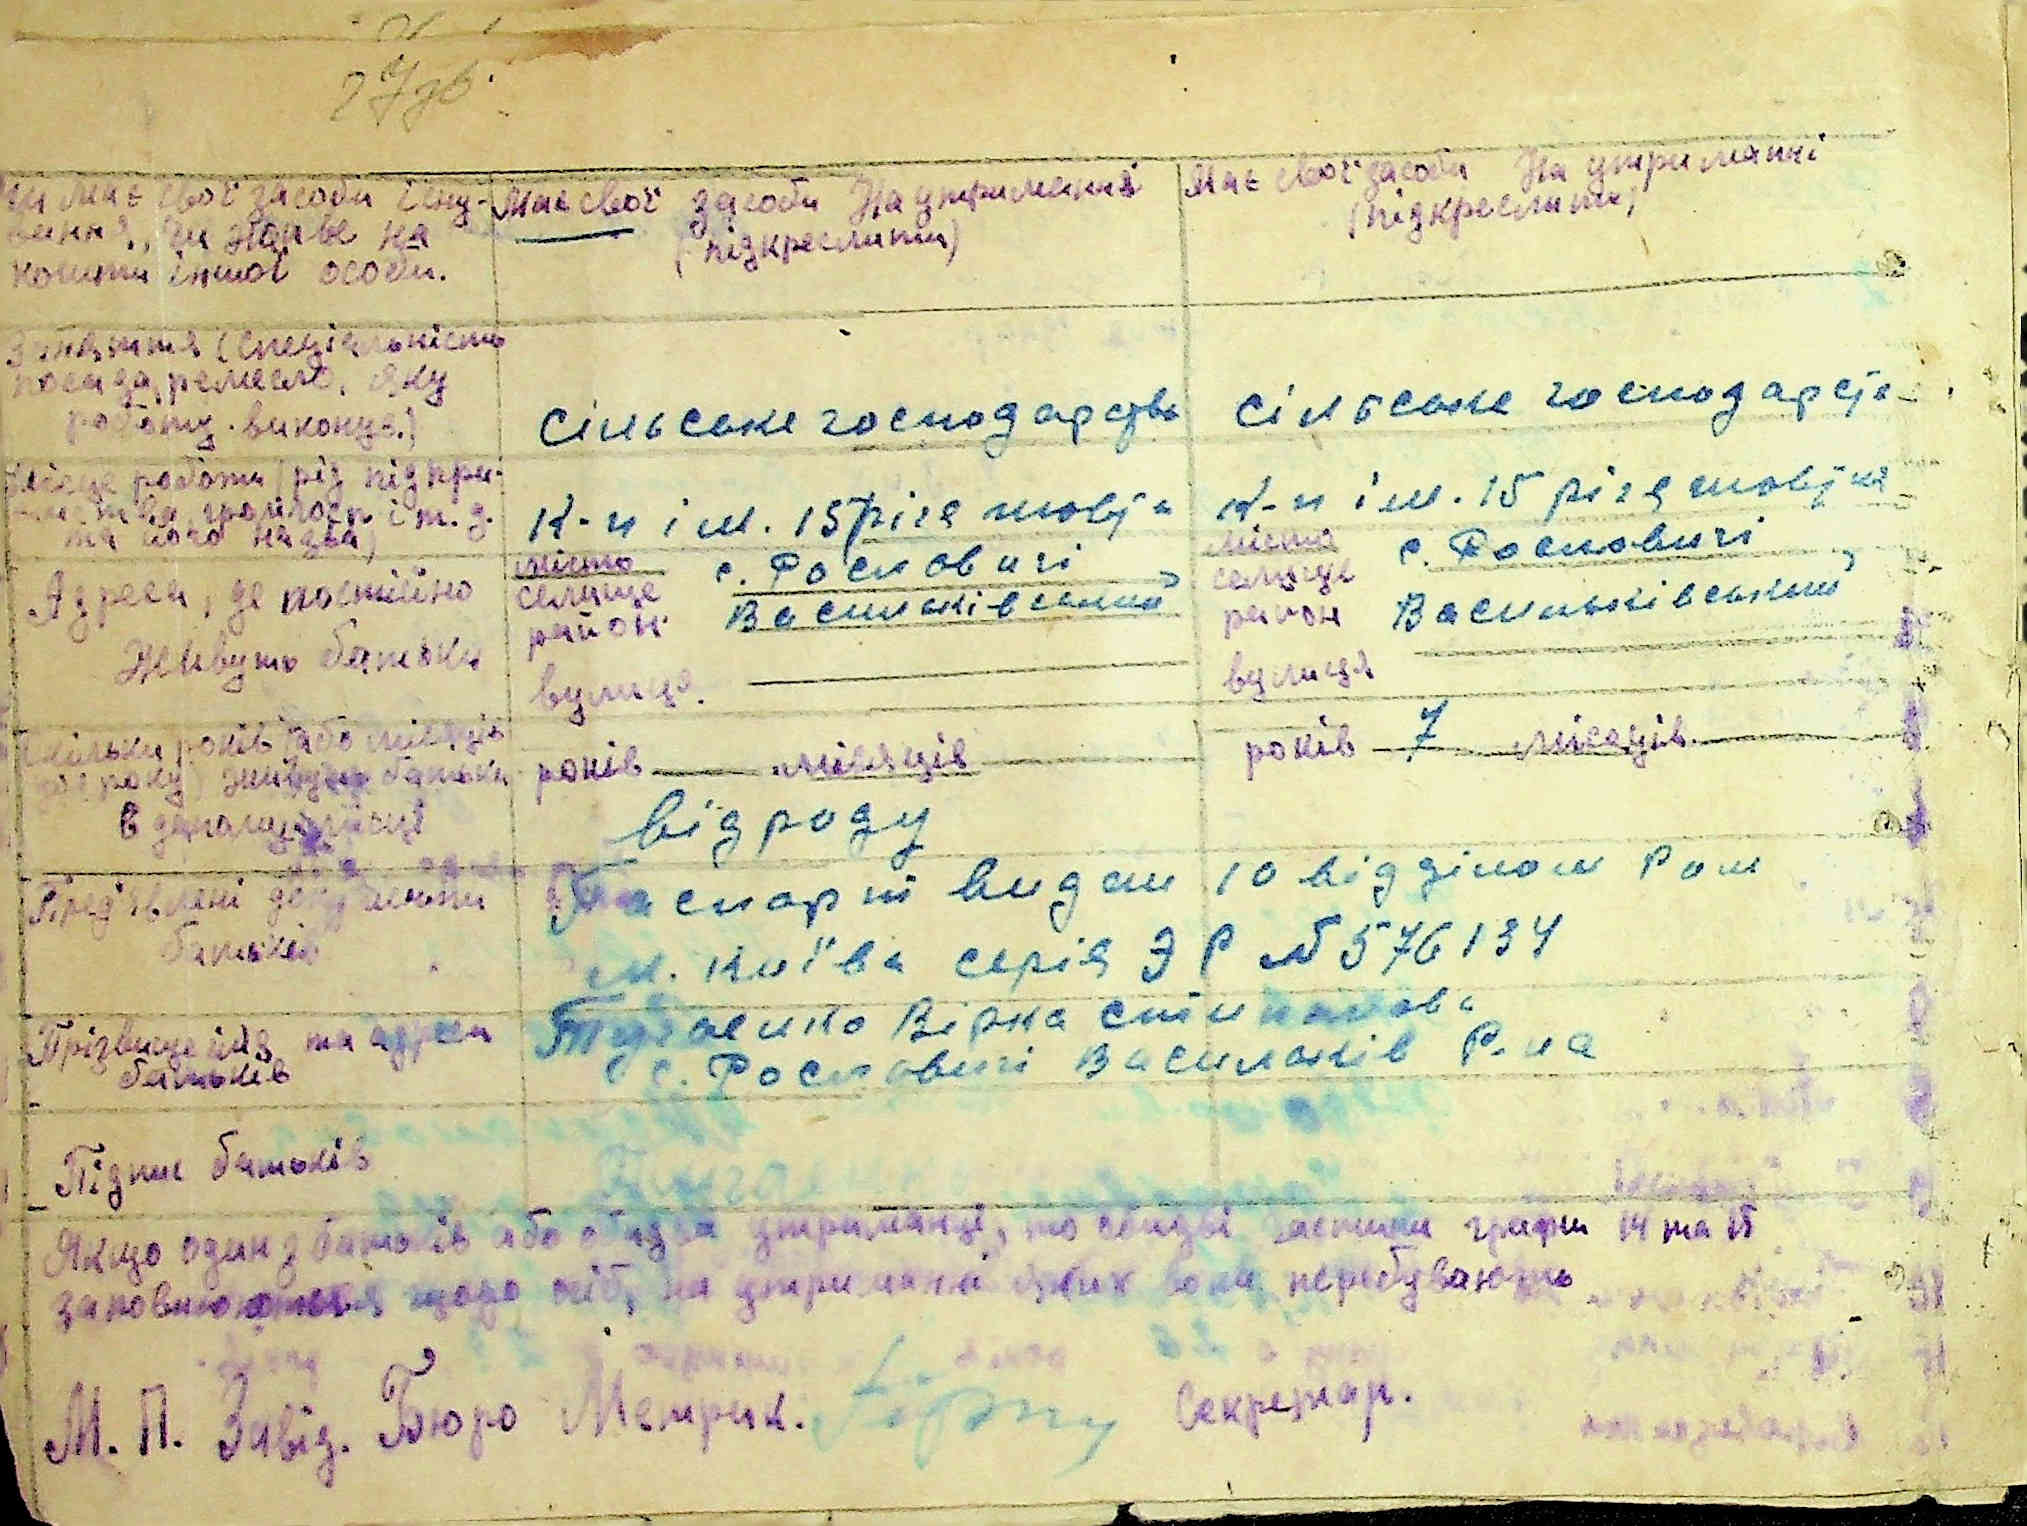 27 зв.
чи має свої засоби існу-
вання, чи живе на
кошти іншої особи.
Має свої засоби На утриманні
(підкреслити)
Має свої засоби На утриманні
(підкреслити)
Заняття (спеціальність
посада, ремесло, яку
роботу виконує.)
сільське господарство
сільське господарст
Місце роботи (рід підпри-
та його назва)
К-п ім. 15 річчя
К-п ім. 15 річчя
Адреса, де постійно
живуть батьки
місто
селище
район
вулиця.
с. Рославичі
Васильківський
місто
селище
район
вулиця
с. Рославичі
Васильківський
Скільки років (або місяців
до 1 року) живуть батьки
в даному місці
років місяців
від роду
років 7 місяців
Пред'явлені документи
батьків
Паспорт видан 10 відділом Р.с.м
м. Київа серія ЭР № 576134
Прізвище ім'я та адреса
батьків
Вірка
с. Рославичі Васильків Р-на
Підпис батьків
Якщо один з батьків або обидва утриманці, то обидві частини графи 14 та 15
заповнюються щодо осіб, на утриманні яких вони перебувають
М. П. Завід. Бюро Метрик.
Секретар.